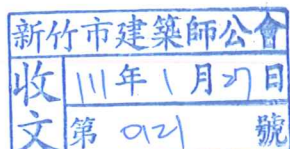 新竹市建築師公會
收文
111年1月27日
第0121號